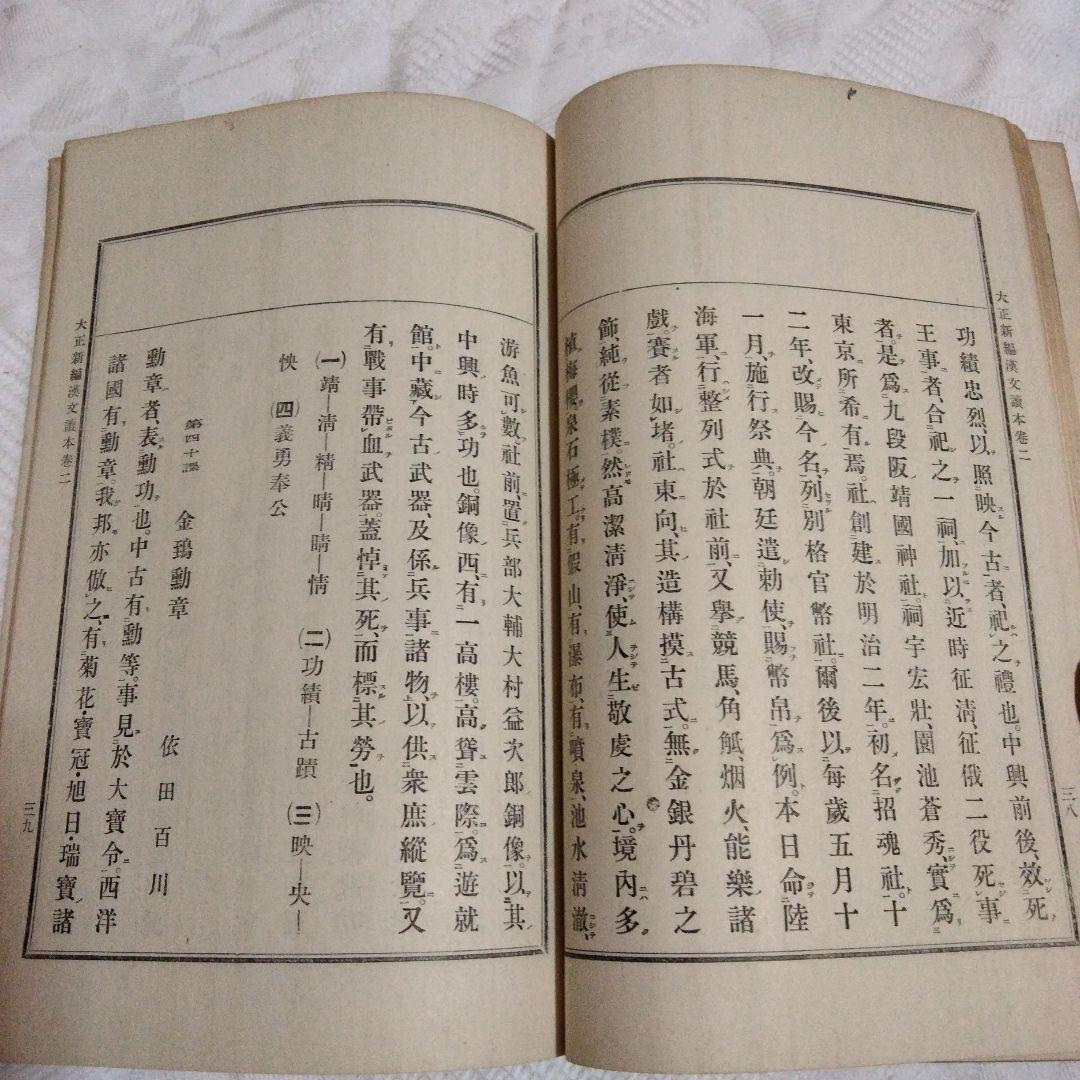 大正新編漢文讀本卷二
三八
功績忠烈、以照映今古者、祀之禮也。中興前後、效死
王事者、合祀之一祠、加以近時征淸、征俄二役死事
者。是爲九段阪靖國神社。祠宇宏壯、園池蒼秀、實爲
東京所希有焉。社創建於明治二年。初名招魂社。十
二年、改賜今名、列別格官幣社。爾後以每歲五月十
一月、施行祭典。朝廷遣勅使、賜幣帛爲例。本日命陸
海軍、行整列式於社前、又擧競馬、角觝、烟火、能樂諸
戲。賽者如堵。社東向、其造構摸古式。無金銀丹碧之
飾、純從素樸。然高潔淸淨、使人生敬虔之心。境內多
植梅櫻、泉石極工。有假山、有瀑布、有噴泉、池水淸澈、
游魚可數。社前置兵部大輔大村益次郎銅像。以其
中興時多功也。銅像西、有一高樓。高聳雲際。爲遊就
館。中藏今古武器、及係兵事諸物、以供衆庶縱覽。又
有戰事帶血武器。蓋悼其死、而標其勞也。
㈠靖―淸―精―晴―睛―情 ㈡功績―古蹟 ㈢映―央―
怏 ㈣義勇奉公
第四十課 金鵄勳章 依田百川
勳章者、表勳功也。中古有勳等。事見於大寶令。西洋
諸國有勳章。我邦亦倣之、有菊花・寶冠・旭日・瑞寶諸
大正新編漢文讀本卷二
三九